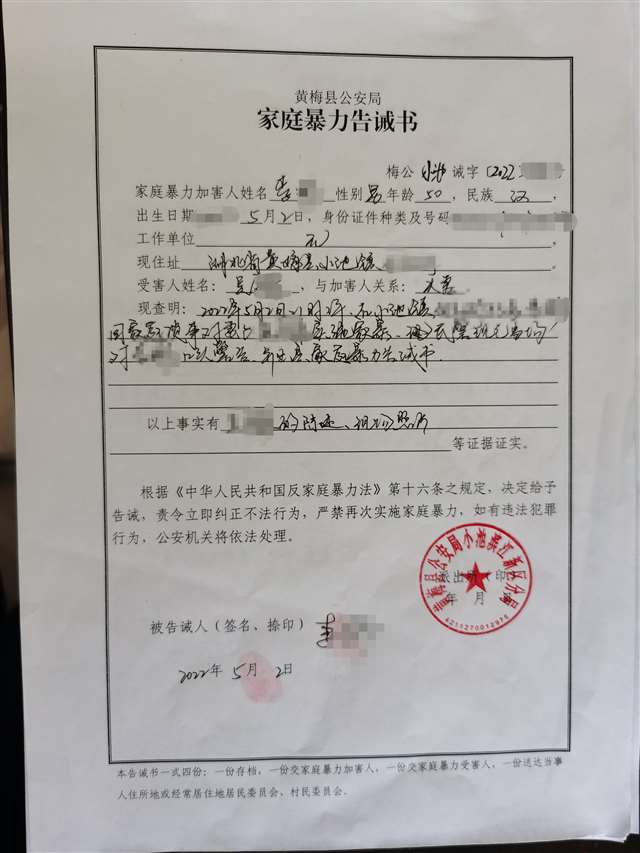 黄梅县公安局
家庭暴力告诫书
梅公 小池 诫字〔2022〕 号
家庭暴力加害人姓名 李 性别 男 年龄 50 ,民族 汉 ,
出生日期 5月2日,身份证件种类及号码
工作单位 无
现住址 湖北省黄梅县小池镇
受害人姓名: 吴 ,与加害人关系: 夫妻
现查明: 2022年5月2日21时许,在小池镇
因家庭琐事对妻子 实施家暴,
对 口头警告,并出具家庭暴力告诫书.
以上事实有 的陈述、现场照片
等证据证实。
根据《中华人民共和国反家庭暴力法》第十六条之规定,决定给予
告诫,责令立即纠正不法行为,严禁再次实施家庭暴力,如有违法犯罪
行为,公安机关将依法处理。
黄梅县公安局小池滨江新区分局
派出所 印
年 月 日
4211270012976
被告诫人(签名、捺印) 李
2022年 5月 2日
本告诫书一式四份:一份存档,一份交家庭暴力加害人,一份交家庭暴力受害人,一份送达当事
人住所地或经常居住地居民委员会、村民委员会。